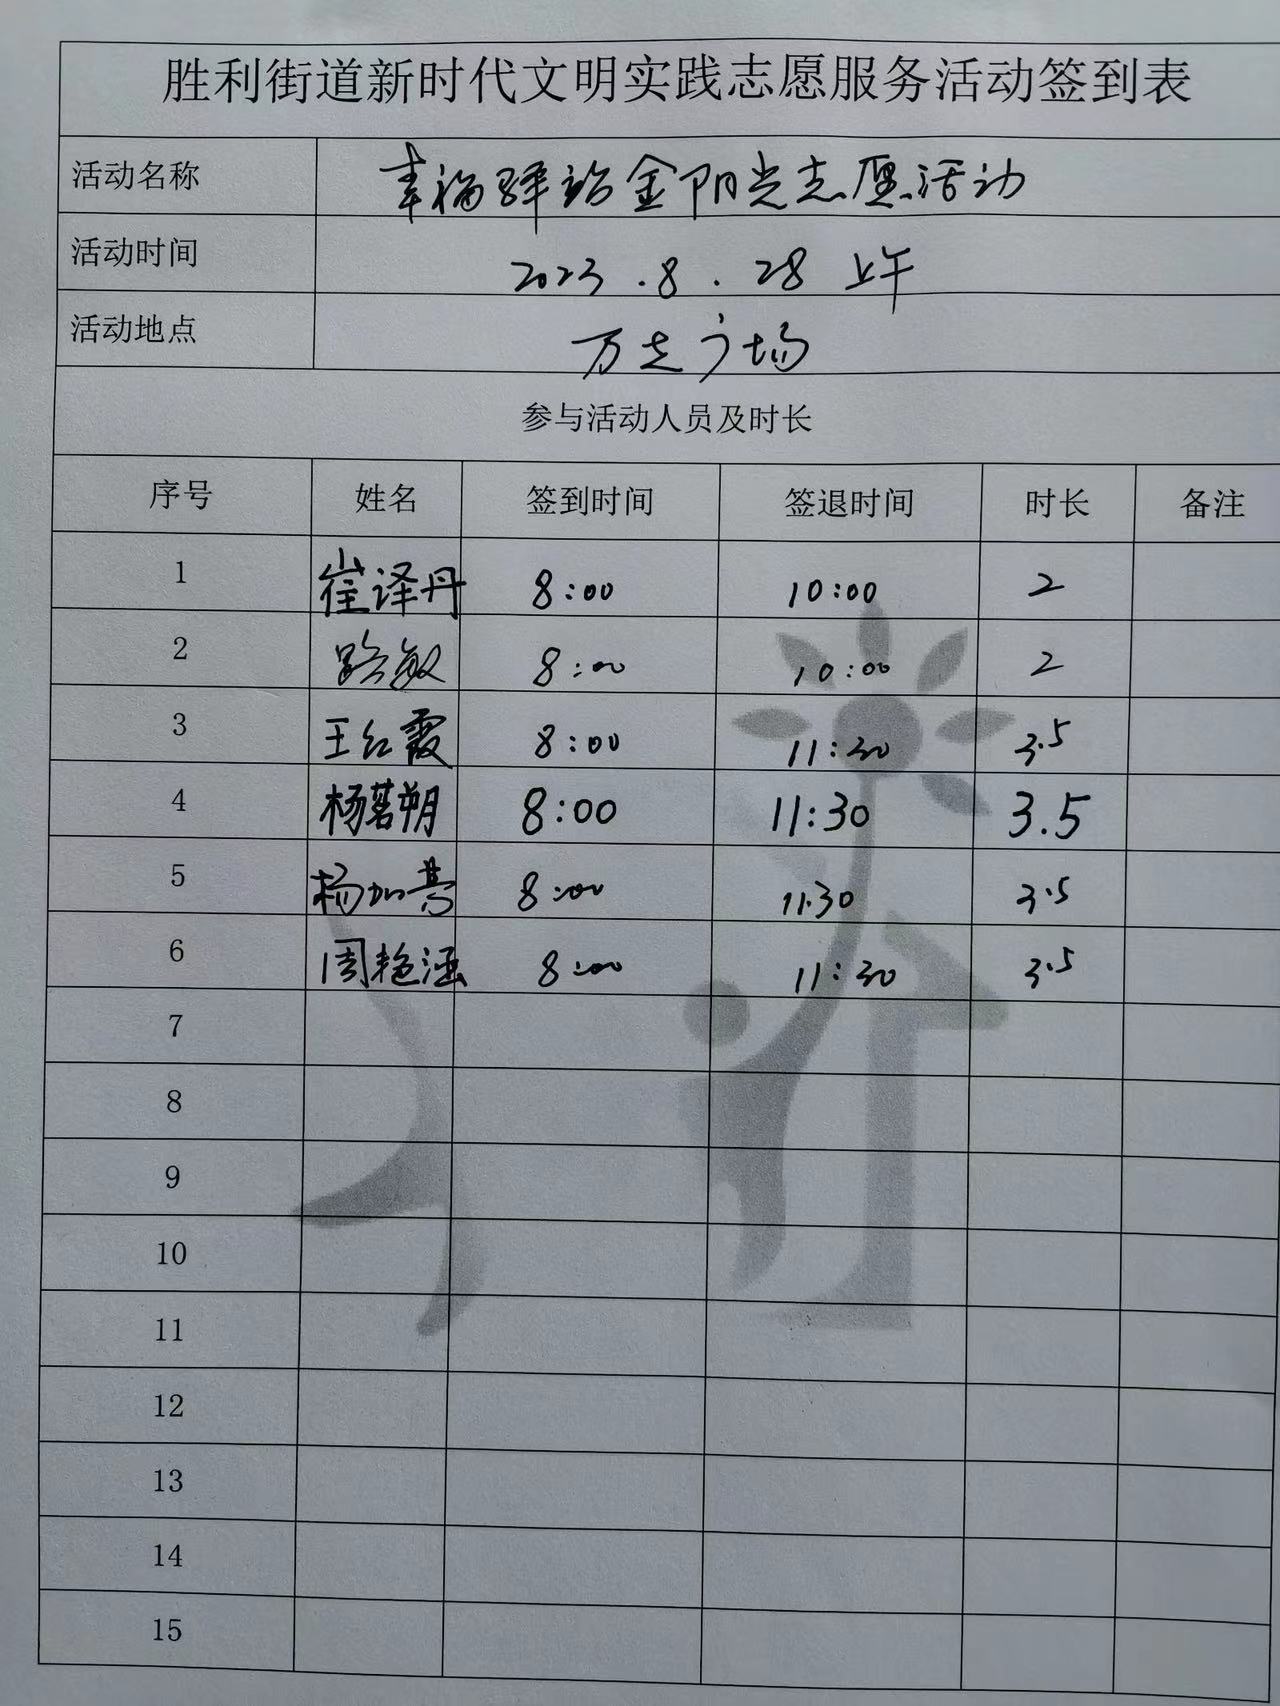 胜利街道新时代文明实践志愿服务活动签到表
活动名称 幸福驿站金阳光志愿活动
活动时间 2023.8.28 上午
活动地点 万达广场
参与活动人员及时长
序号 姓名 签到时间 签退时间 时长 备注
1 崔译丹 8:00 10:00 2
2 路敏 8:00 10:00 2
3 王红霞 8:00 11:30 3.5
4 杨茗朔 8:00 11:30 3.5
5 杨加 8:00 11:30 3.5
6 周艳涵 8:00 11:30 3.5
7
8
9
10
11
12
13
14
15